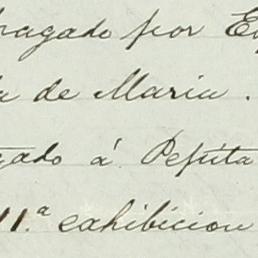 pagado por
de Maria.
á Pepita
11.ª exhibicion